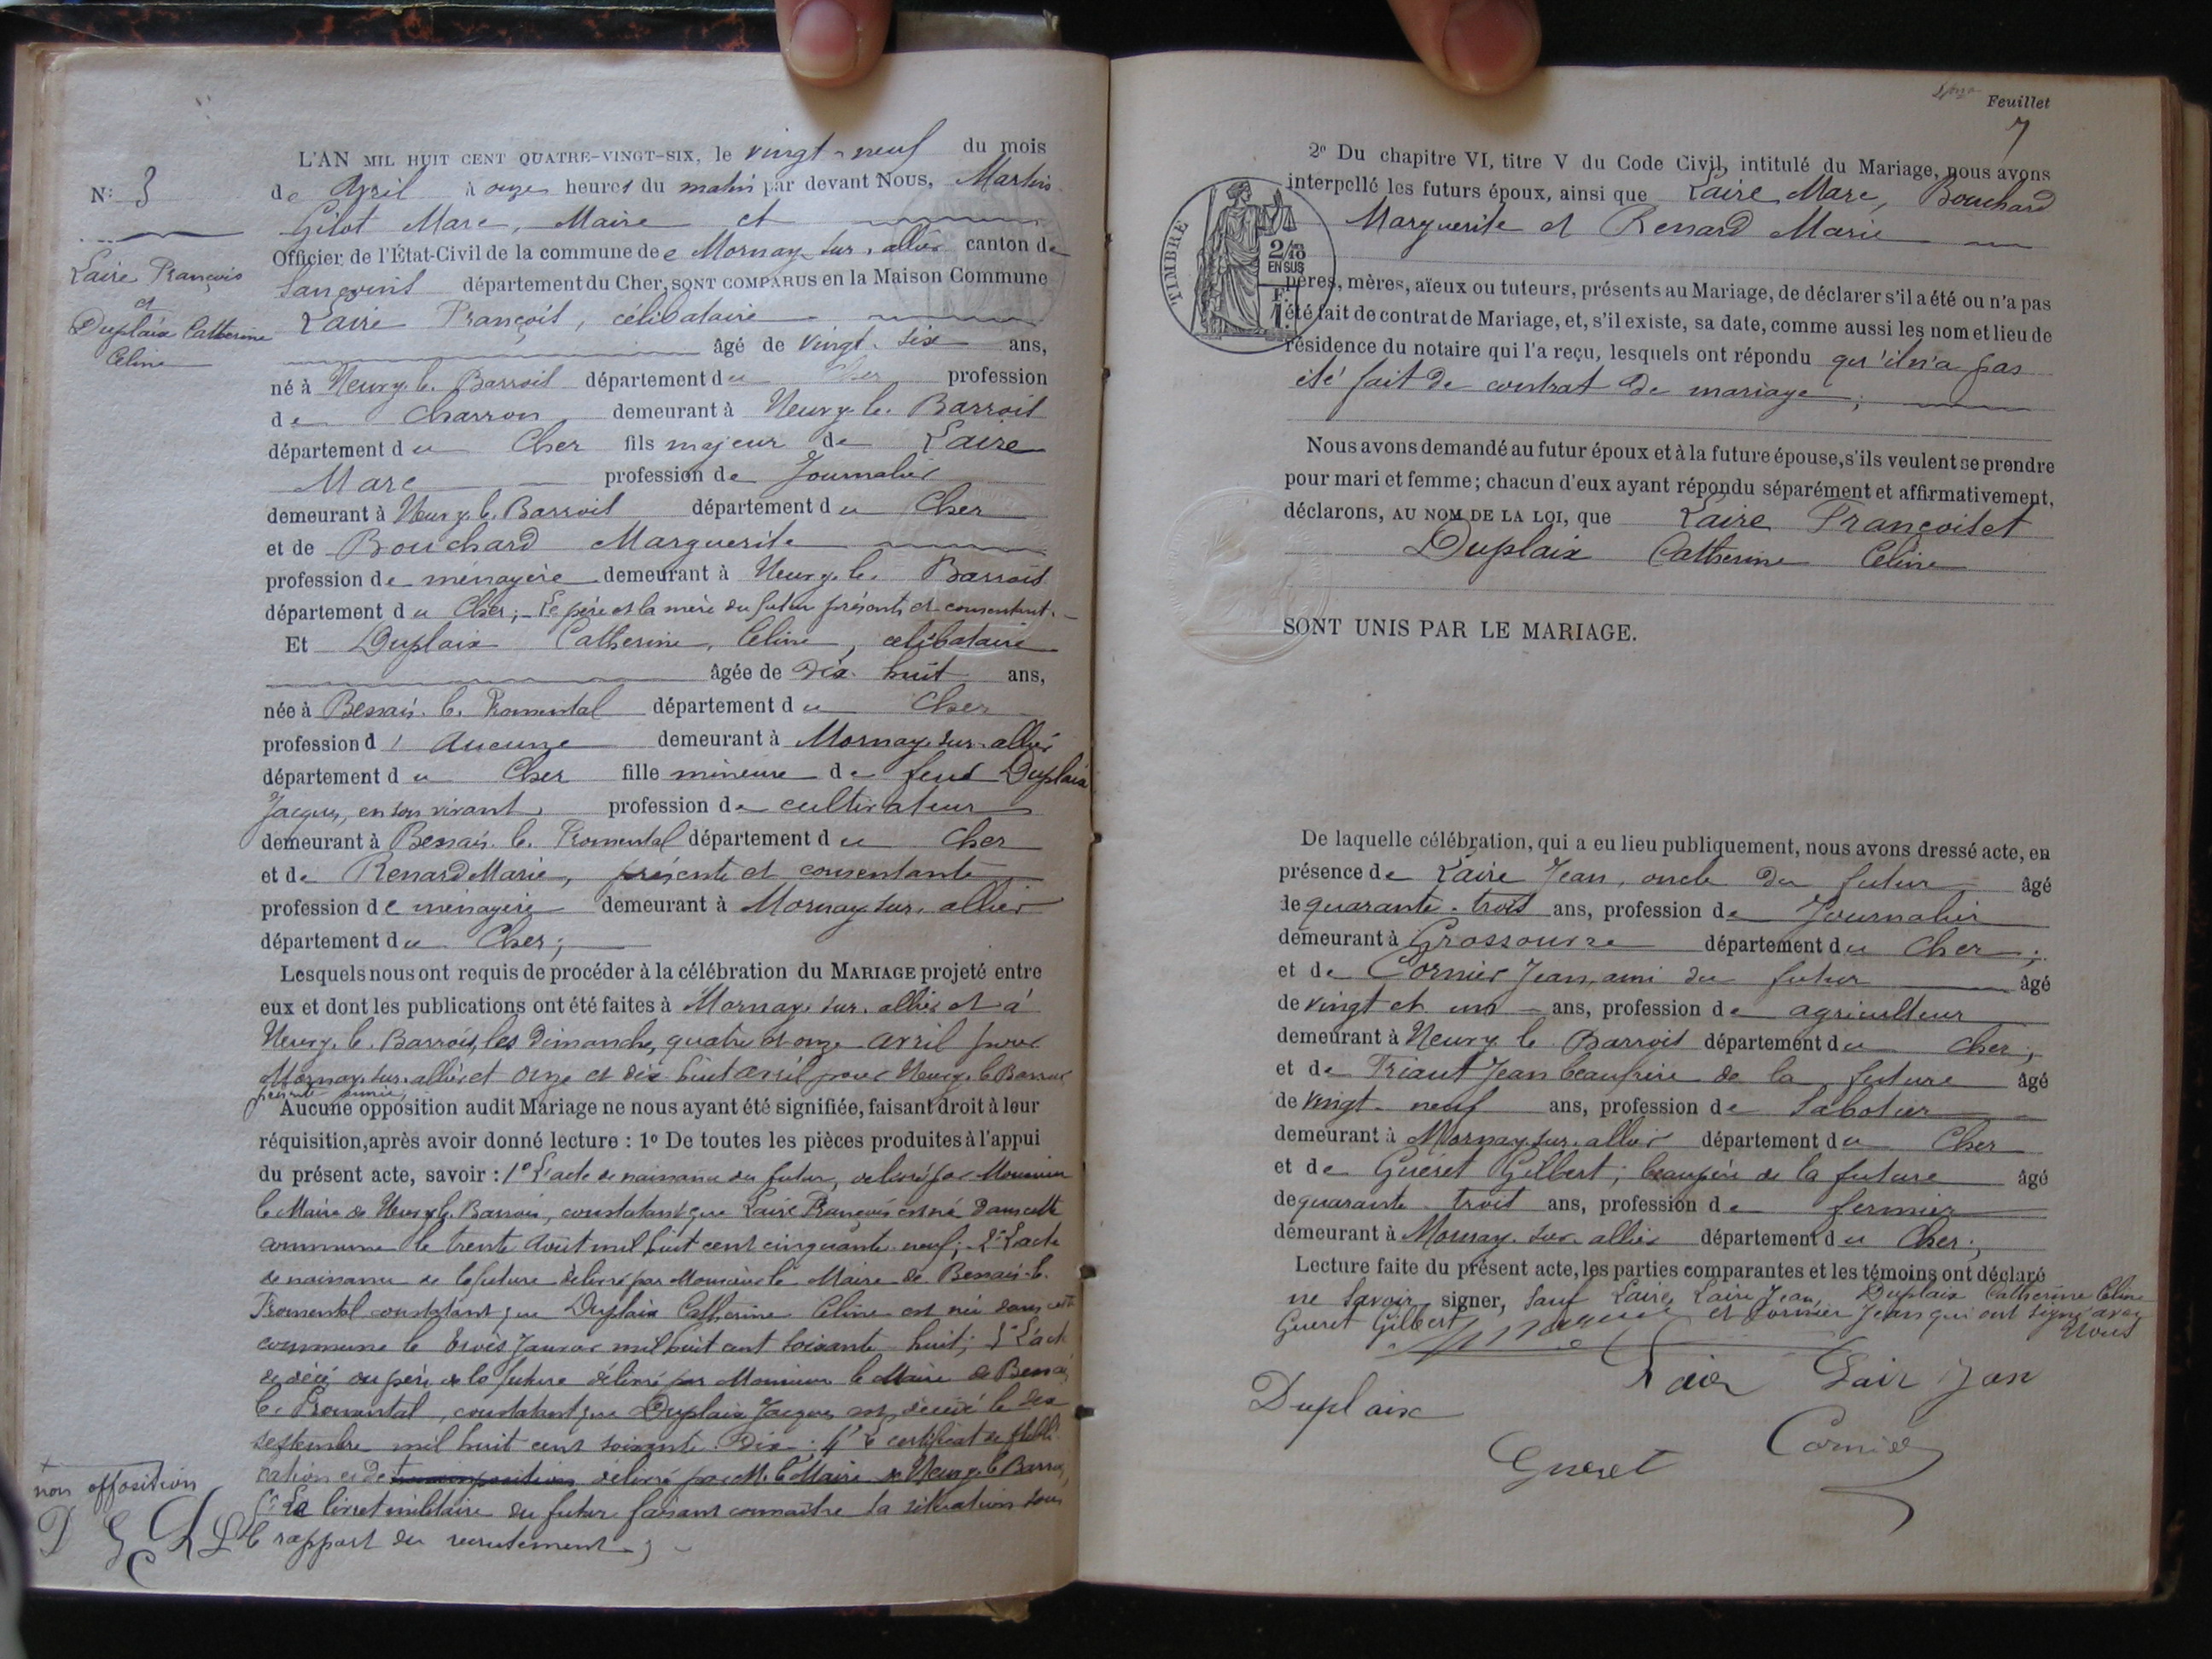 N: 3
Laire François
et
Duplaix Catherine
Celine
L'AN MIL HUIT CENT QUATRE-VINGT-SIX, le vingt-neuf du mois
de Avril à onze heures du matin par devant Nous, Martin
Gilot Marc, Maire et
Officier de l'État-Civil de la commune de Mornay-sur-allier canton de
Sancoins département du Cher, SONT COMPARUS en la Maison Commune
Laire François, célibataire
âgé de vingt-six ans,
né à Neuvy-le-Barrois département du Cher profession
de Charron demeurant à Neuvy-le-Barrois
département du Cher fils majeur de Laire
Marc profession de Journalier
demeurant à Neuvy-le-Barrois département du Cher
et de Bouchard Marguerite
profession de ménagère demeurant à Neuvy-le-Barrois
département du Cher; Le père et la mère du futur présents et consentant.
Et Duplaix Catherine, Celine, célibataire
âgée de dix-huit ans,
née à Bessais-le-Fromental département du Cher
profession d'Aucune demeurant à Mornay-sur-allier
département du Cher fille mineure de feu Duplaix
Jacques, en son vivant, profession de cultivateur
demeurant à Bessais-le-Fromental département du Cher
et de Renard Marie, présente et consentante
profession de ménagère demeurant à Mornay-sur-allier
département du Cher;
Lesquels nous ont requis de procéder à la célébration du MARIAGE projeté entre
eux et dont les publications ont été faites à Mornay-sur-allier et à
Neuvy-le-Barrois, les Dimanche, quatre et onze avril pour
Mornay-sur-allier et onze et dix huit avril pour Neuvy-le-Barrois
présente année,
Aucune opposition audit Mariage ne nous ayant été signifiée, faisant droit à leur
réquisition, après avoir donné lecture : 1° De toutes les pièces produites à l'appui
du présent acte, savoir : 1° L'acte de naissance du futur, délivré par Monsieur
le Maire de Neuvy-le-Barrois, constatant que Laire François est né dans cette
commune le trente Août mil huit cent cinquante-neuf; 2° L'acte
de naissance de la future délivré par Monsieur le Maire de Bessais-le-
Fromental constatant que Duplaix Catherine Celine est née dans cette
commune le trois Janvier mil huit cent soixante-huit; 3° L'acte
de décès du père de la future délivré par Monsieur le Maire de Bessais
le-Fromental, constatant que Duplaix Jacques est décédé le dix
septembre mil huit cent soixante-dix; 4° Le certificat de publi-
cation et de délivré par M. le Maire de Neuvy-le-Barrois,
5° Le livret militaire du futur faisant connaître sa situation sous
le rapport du recrutement;
non opposition
D G C L L
Feuillet
7
2° Du chapitre VI, titre V du Code Civil, intitulé du Mariage, nous avons
interpellé les futurs époux, ainsi que Laire Marc, Bouchard
Marguerite et Renard Marie
TIMBRE
2/10
EN SUS
F.
1.
pères, mères, aïeux ou tuteurs, présents au Mariage, de déclarer s'il a été ou n'a pas
été fait de contrat de Mariage, et, s'il existe, sa date, comme aussi les nom et lieu de
résidence du notaire qui l'a reçu, lesquels ont répondu qu'il n'a pas
été fait de contrat de mariage;
Nous avons demandé au futur époux et à la future épouse, s'ils veulent se prendre
pour mari et femme; chacun d'eux ayant répondu séparément et affirmativement,
déclarons, AU NOM DE LA LOI, que Laire François et
Duplaix Catherine Celine
SONT UNIS PAR LE MARIAGE.
De laquelle célébration, qui a eu lieu publiquement, nous avons dressé acte, en
présence de Laire Jean, oncle du futur âgé
de quarante-trois ans, profession de Journalier
demeurant à Grossouvre département du Cher;
et de Cornier Jean, ami du futur âgé
de vingt et un ans, profession de agriculteur
demeurant à Neuvy le Barrois département du Cher;
et de Friaut Jean beaufrère de la future âgé
de vingt-neuf ans, profession de Sabotier
demeurant à Mornay-sur-allier département du Cher
et de Gueret Gilbert; beaupère de la future âgé
de quarante-trois ans, profession de fermier
demeurant à Mornay-sur-allier département du Cher;
Lecture faite du présent acte, les parties comparantes et les témoins ont déclaré
ne savoir signer, sauf Laire, Laire Jean, Duplaix Catherine Celine
Gueret Gilbert et Cornier Jean qui ont signé avec
Nous
Duplaix
Lair Jan
Gueret
Cornier